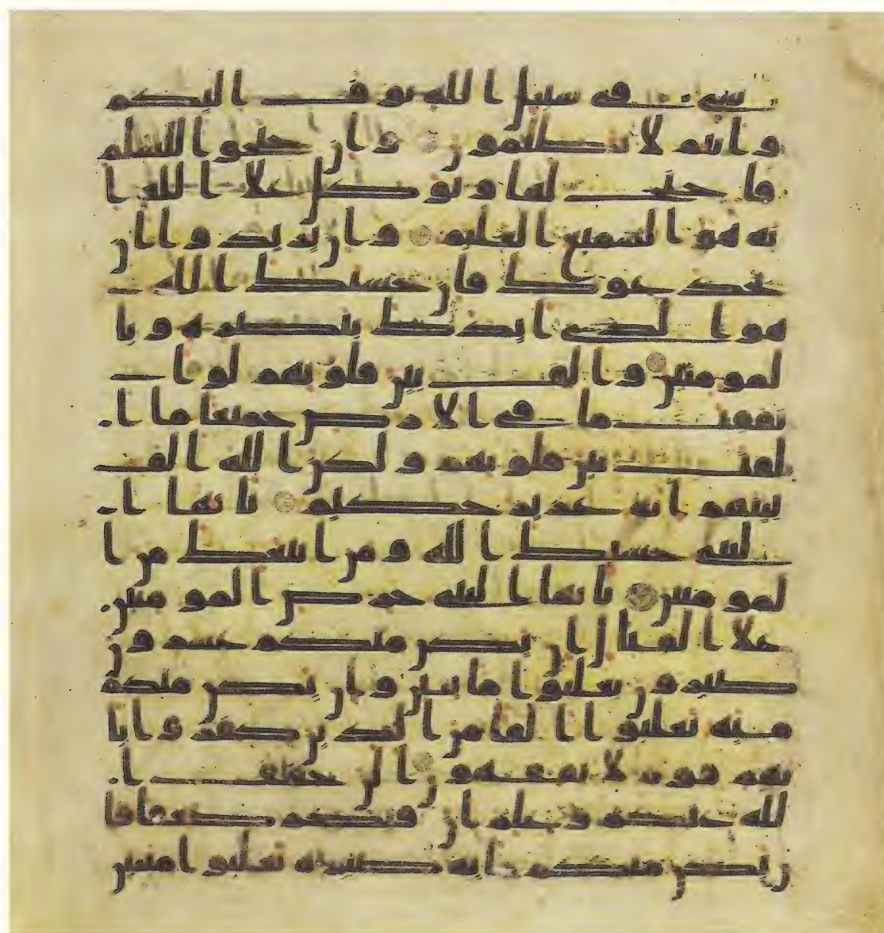 شيء في سبيل الله يوف اليكم
وانتم لا تظلمون وان جنحوا للسلم
فاجنح لها وتوكل على الله ا
نه هو السميع العليم وان يريدوا ان
يخدعوك فان حسبك الله
هو الذي ايدك بنصره وبا
لمومنين والف بين قلوبهم لو ا
نفقت ما في الارض جميعا ما ا
لفت بين قلوبهم ولكن الله الف
بينهم انه عزيز حكيم يايها ا
لنبي حسبك الله ومن اتبعك من ا
لمومنين يايها النبي حرض المومنين
على القتال ان يكن منكم عشرون
صبرون يغلبوا مايتين وان يكن منكم
مية يغلبوا الفا من الذين كفروا با
نهم قوم لا يفقهون الن خفف ا
لله عنكم وعلم ان فيكم ضعفا فا
ن يكن منكم ماية صبرة يغلبوا ميتين